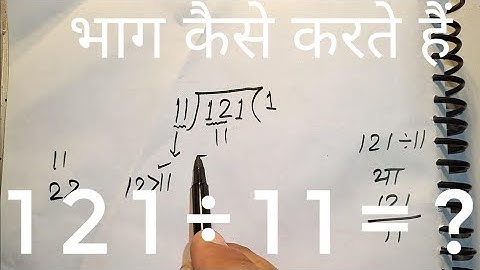 भाग कैसे करते हैं
11)121(1
11
11
22
12>11
121÷11
या
121
11
121÷11=?